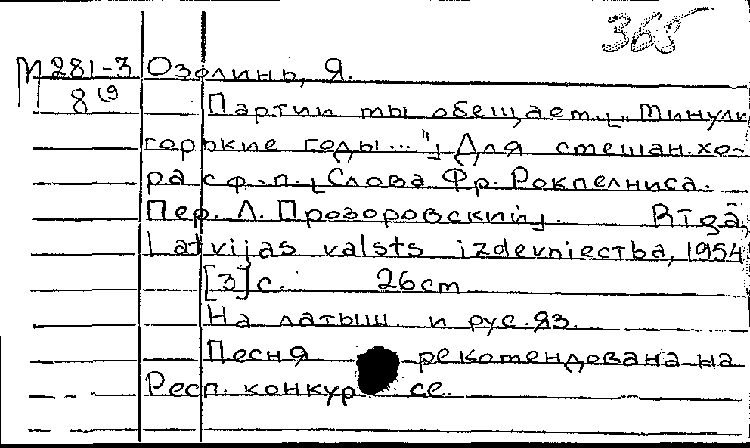 365
М281-3 Озолинь, Я.
819 Партии ты обещаем. [„Минули
горькие годы..."] Для смешан. хо-
ра с ф.-п. [Слова Фр. Рокпелниса.
Пер. Л. Прозоровский]. Rīgā,
Latvijas valsts izdevniecība, 1954
[3] с. 26 cm
На латыш. и рус. яз.
Песня рекомендована на
Респ. конкурсе.